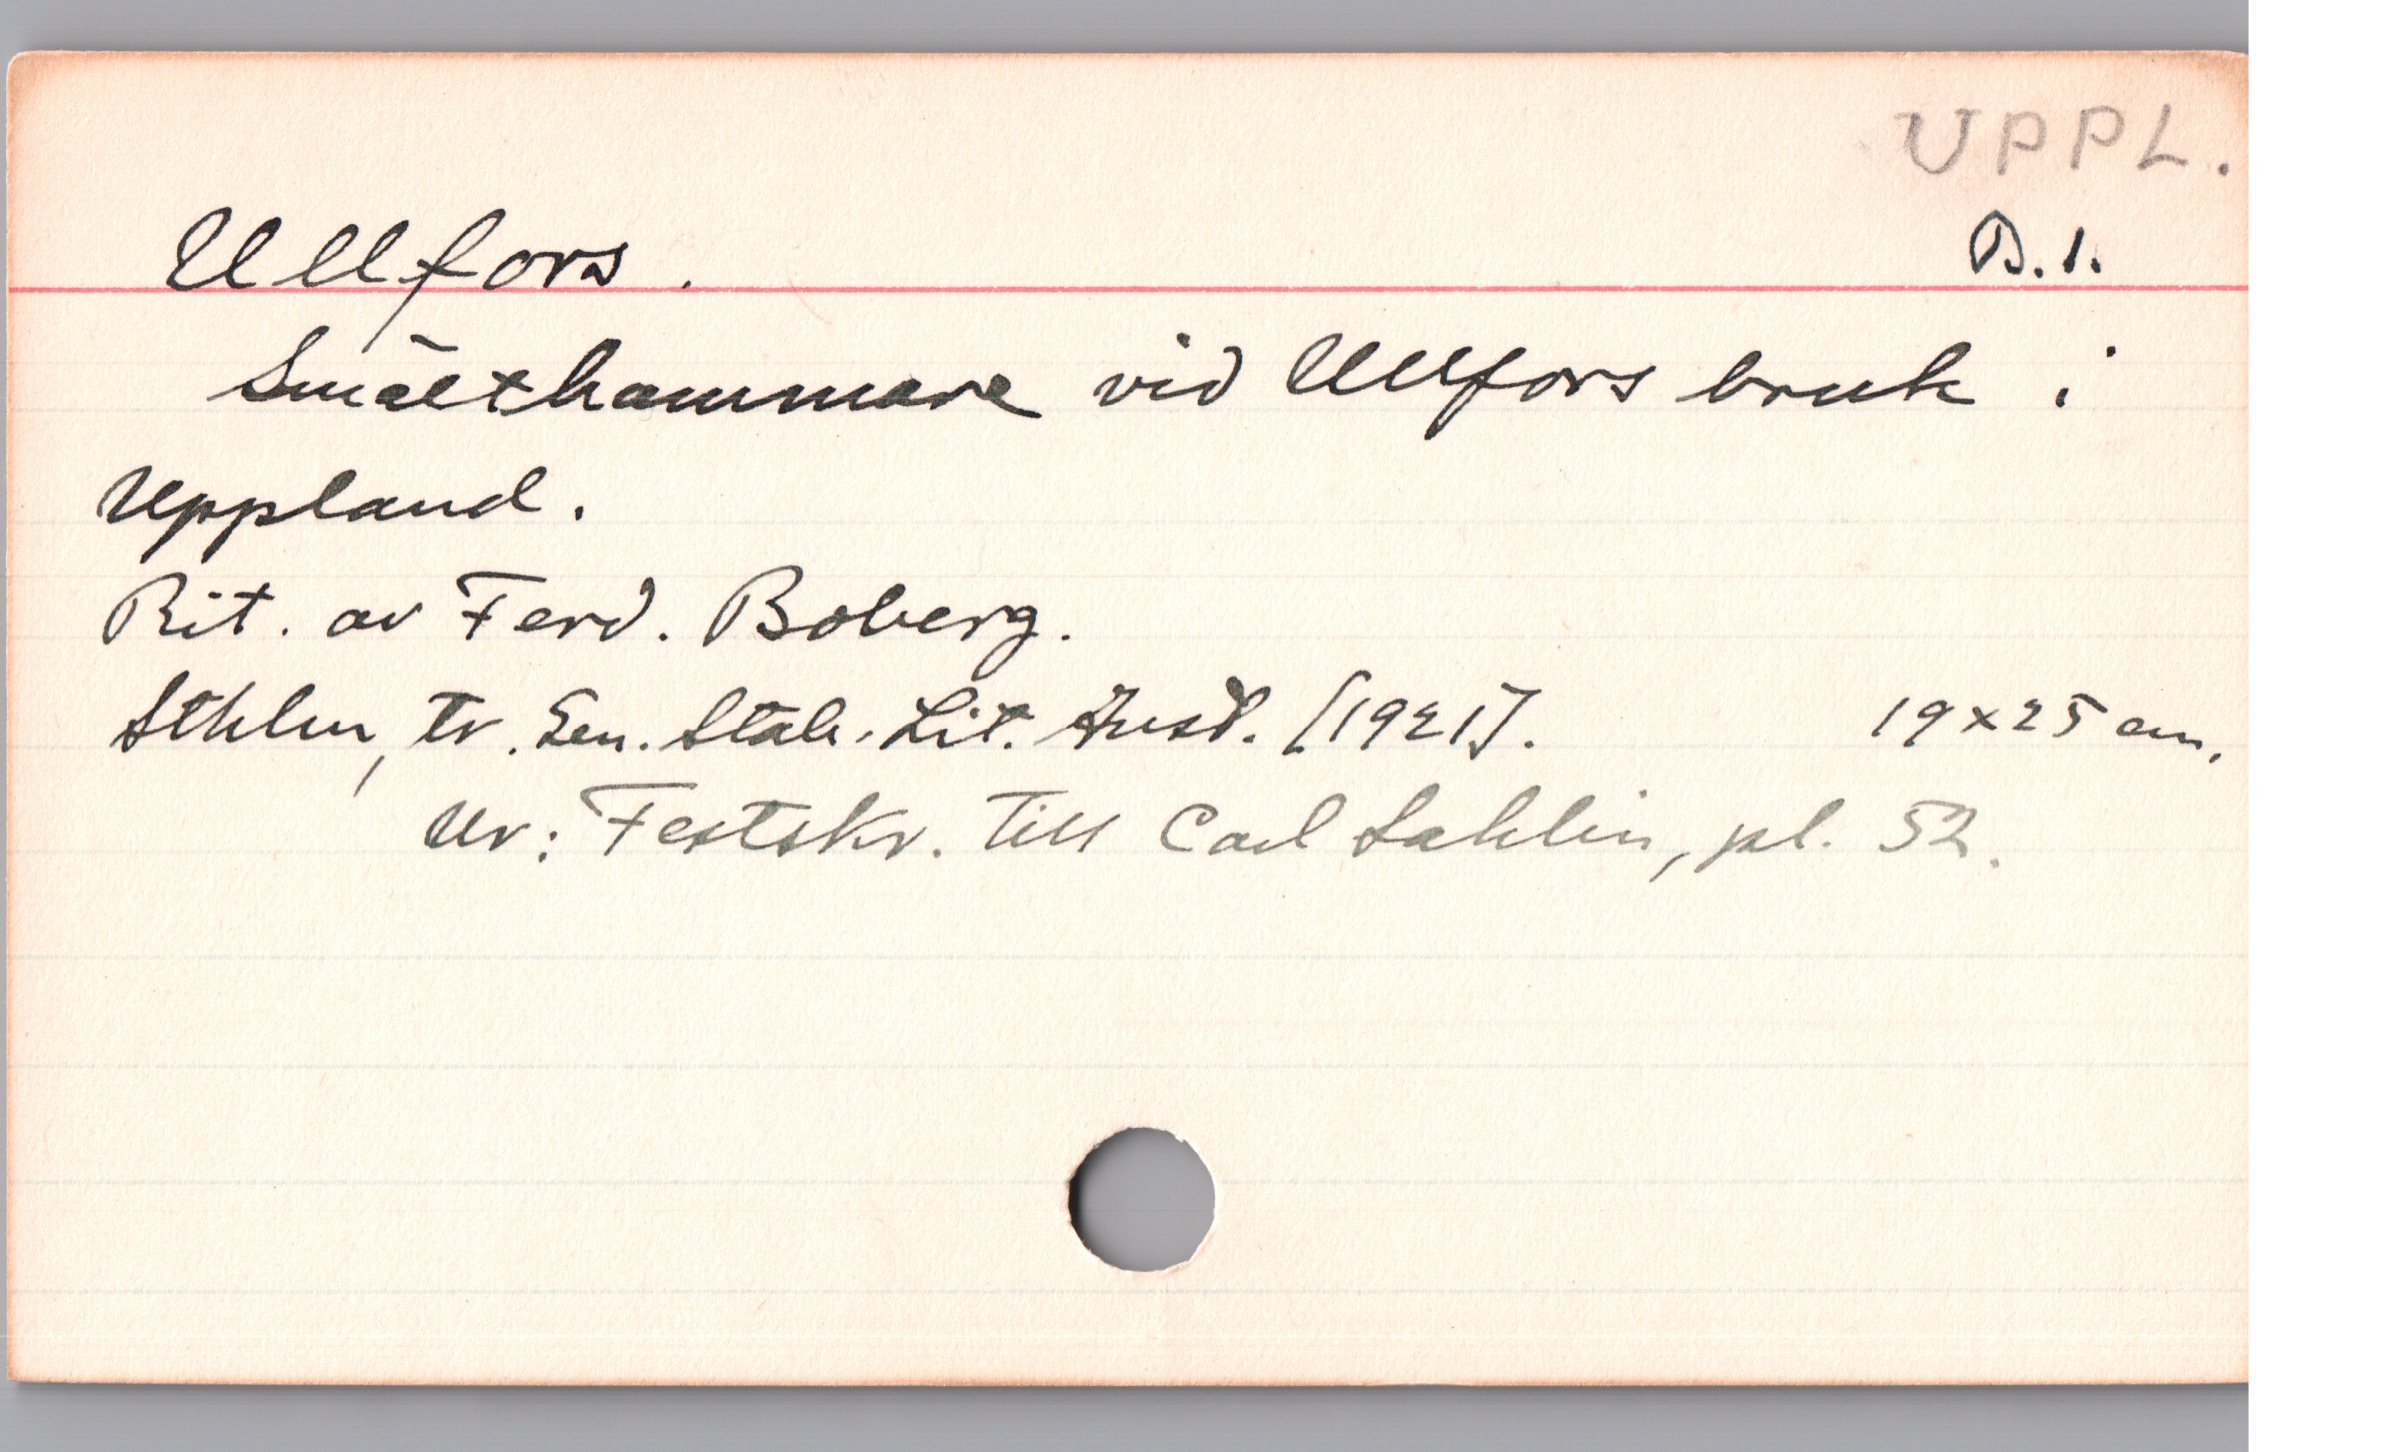 UPPL.
Ullfors. B.1.
Smälthammare vid Ullfors bruk i
Uppland.
Rit. av Ferd. Boberg.
Sthlm, tr. Gen. Stab. Lit. Anst. [1921]. 19x25 cm.
Ur: Festskr. till Carl Sahlin, pl. 52.